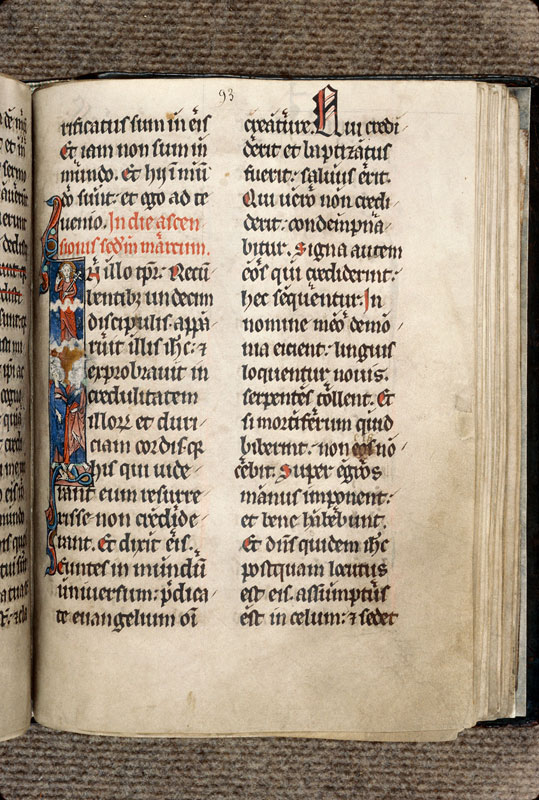 93
rificatus sum in eis
Et iam non sum in
mundo. Et hij ī mū
do sunt: et ego ad te
uenio. In die ascen
sionis scdm marcum.
In illo tpr: Recū
bentibꝫ undecim
discipulis appa
ruit illis ihc: ⁊
exprobrauit in
credulitatem
illorꝫ et duri
ciam cordis: qꝛ
his qui uide
rant eum resurre
xisse non credide
runt. Et dixit eis.
Euntes in mundū
uniuersum: p̄dica
te euangelium oī
creature. Qui credi
derit et baptizatus
fuerit: saluus erit.
Qui uero non credi
derit: condempna
bitur. Signa autem
eos qui crediderint:
hec sequentur. In
nomine meo demo
nia eicient: linguis
loquentur nouis.
serpentes tollent. Et
si mortiferum quid
biberint: non eos no
cebit. Super egros
manus imponent:
et bene habebunt.
Et dns quidem ihc
postquam locutus
est eis. assumptus
est in celum: ⁊ sedet